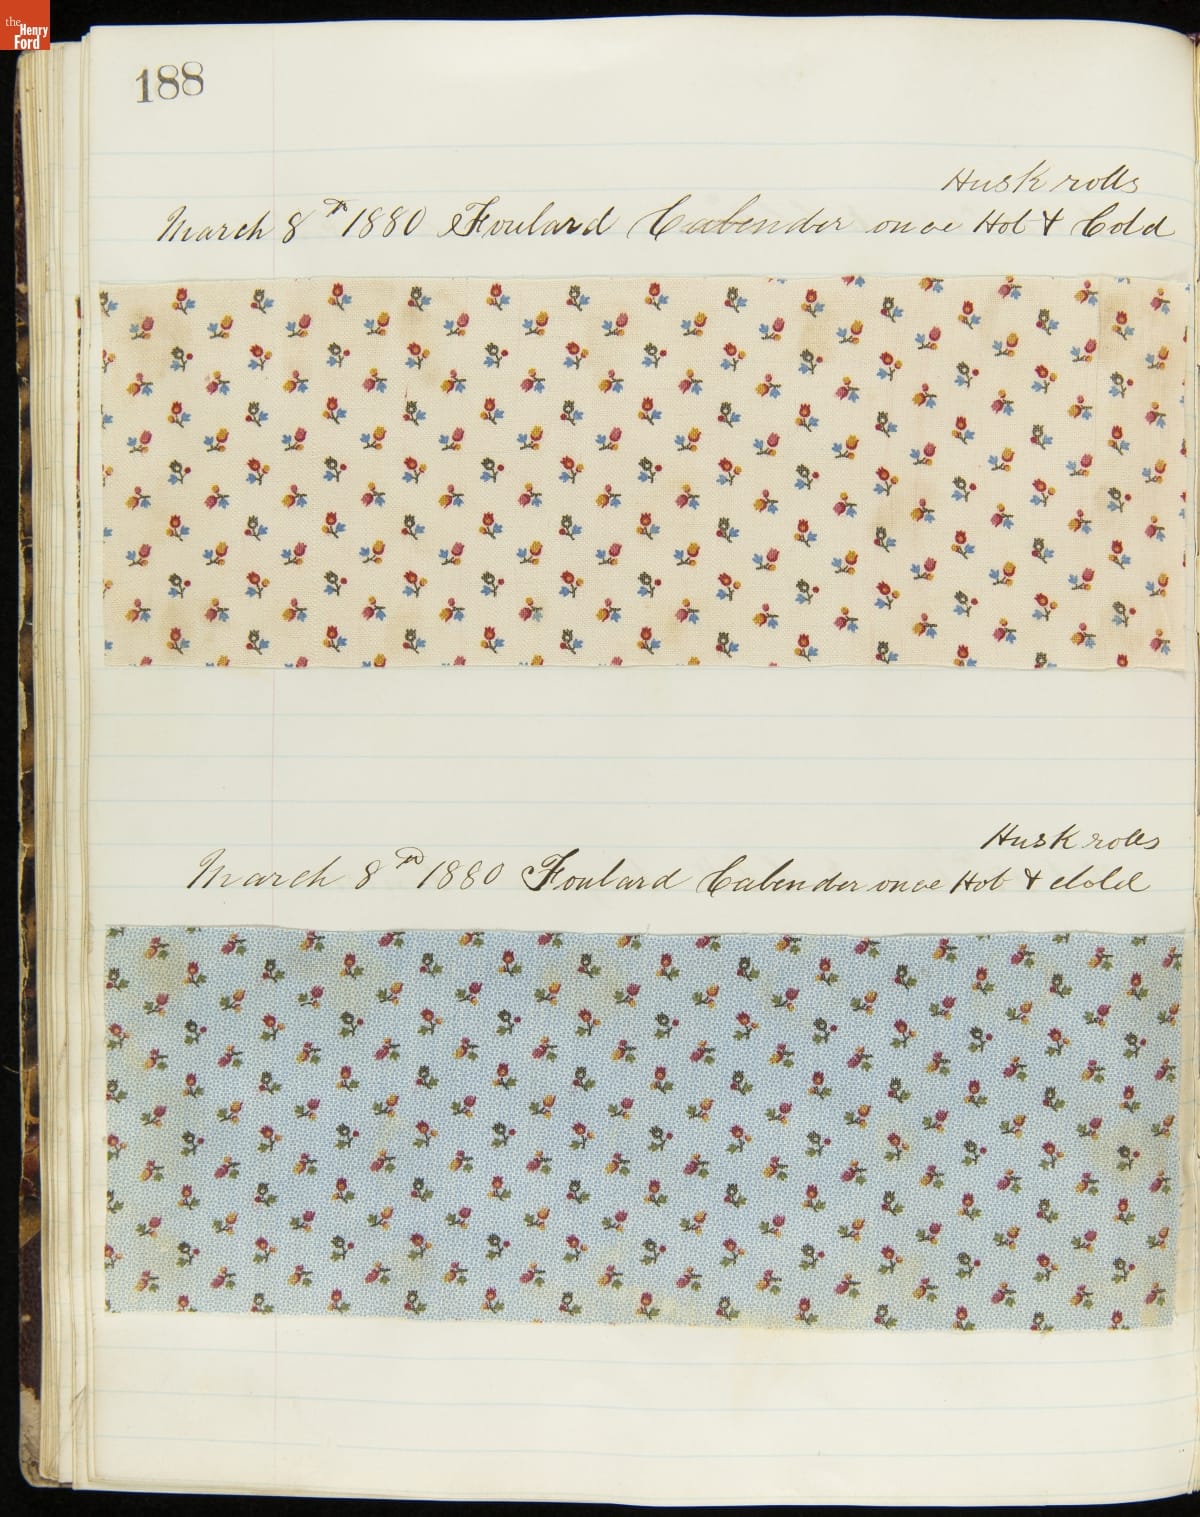 the
Henry
Ford
188
Husk rolls
March 8th 1880 Foulard Calender once Hot & Cold
Husk rolls
March 8th 1880 Foulard Calender once Hot & Cold